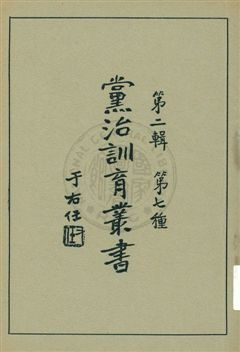 第二輯 第七種
黨治訓育叢書
于右任